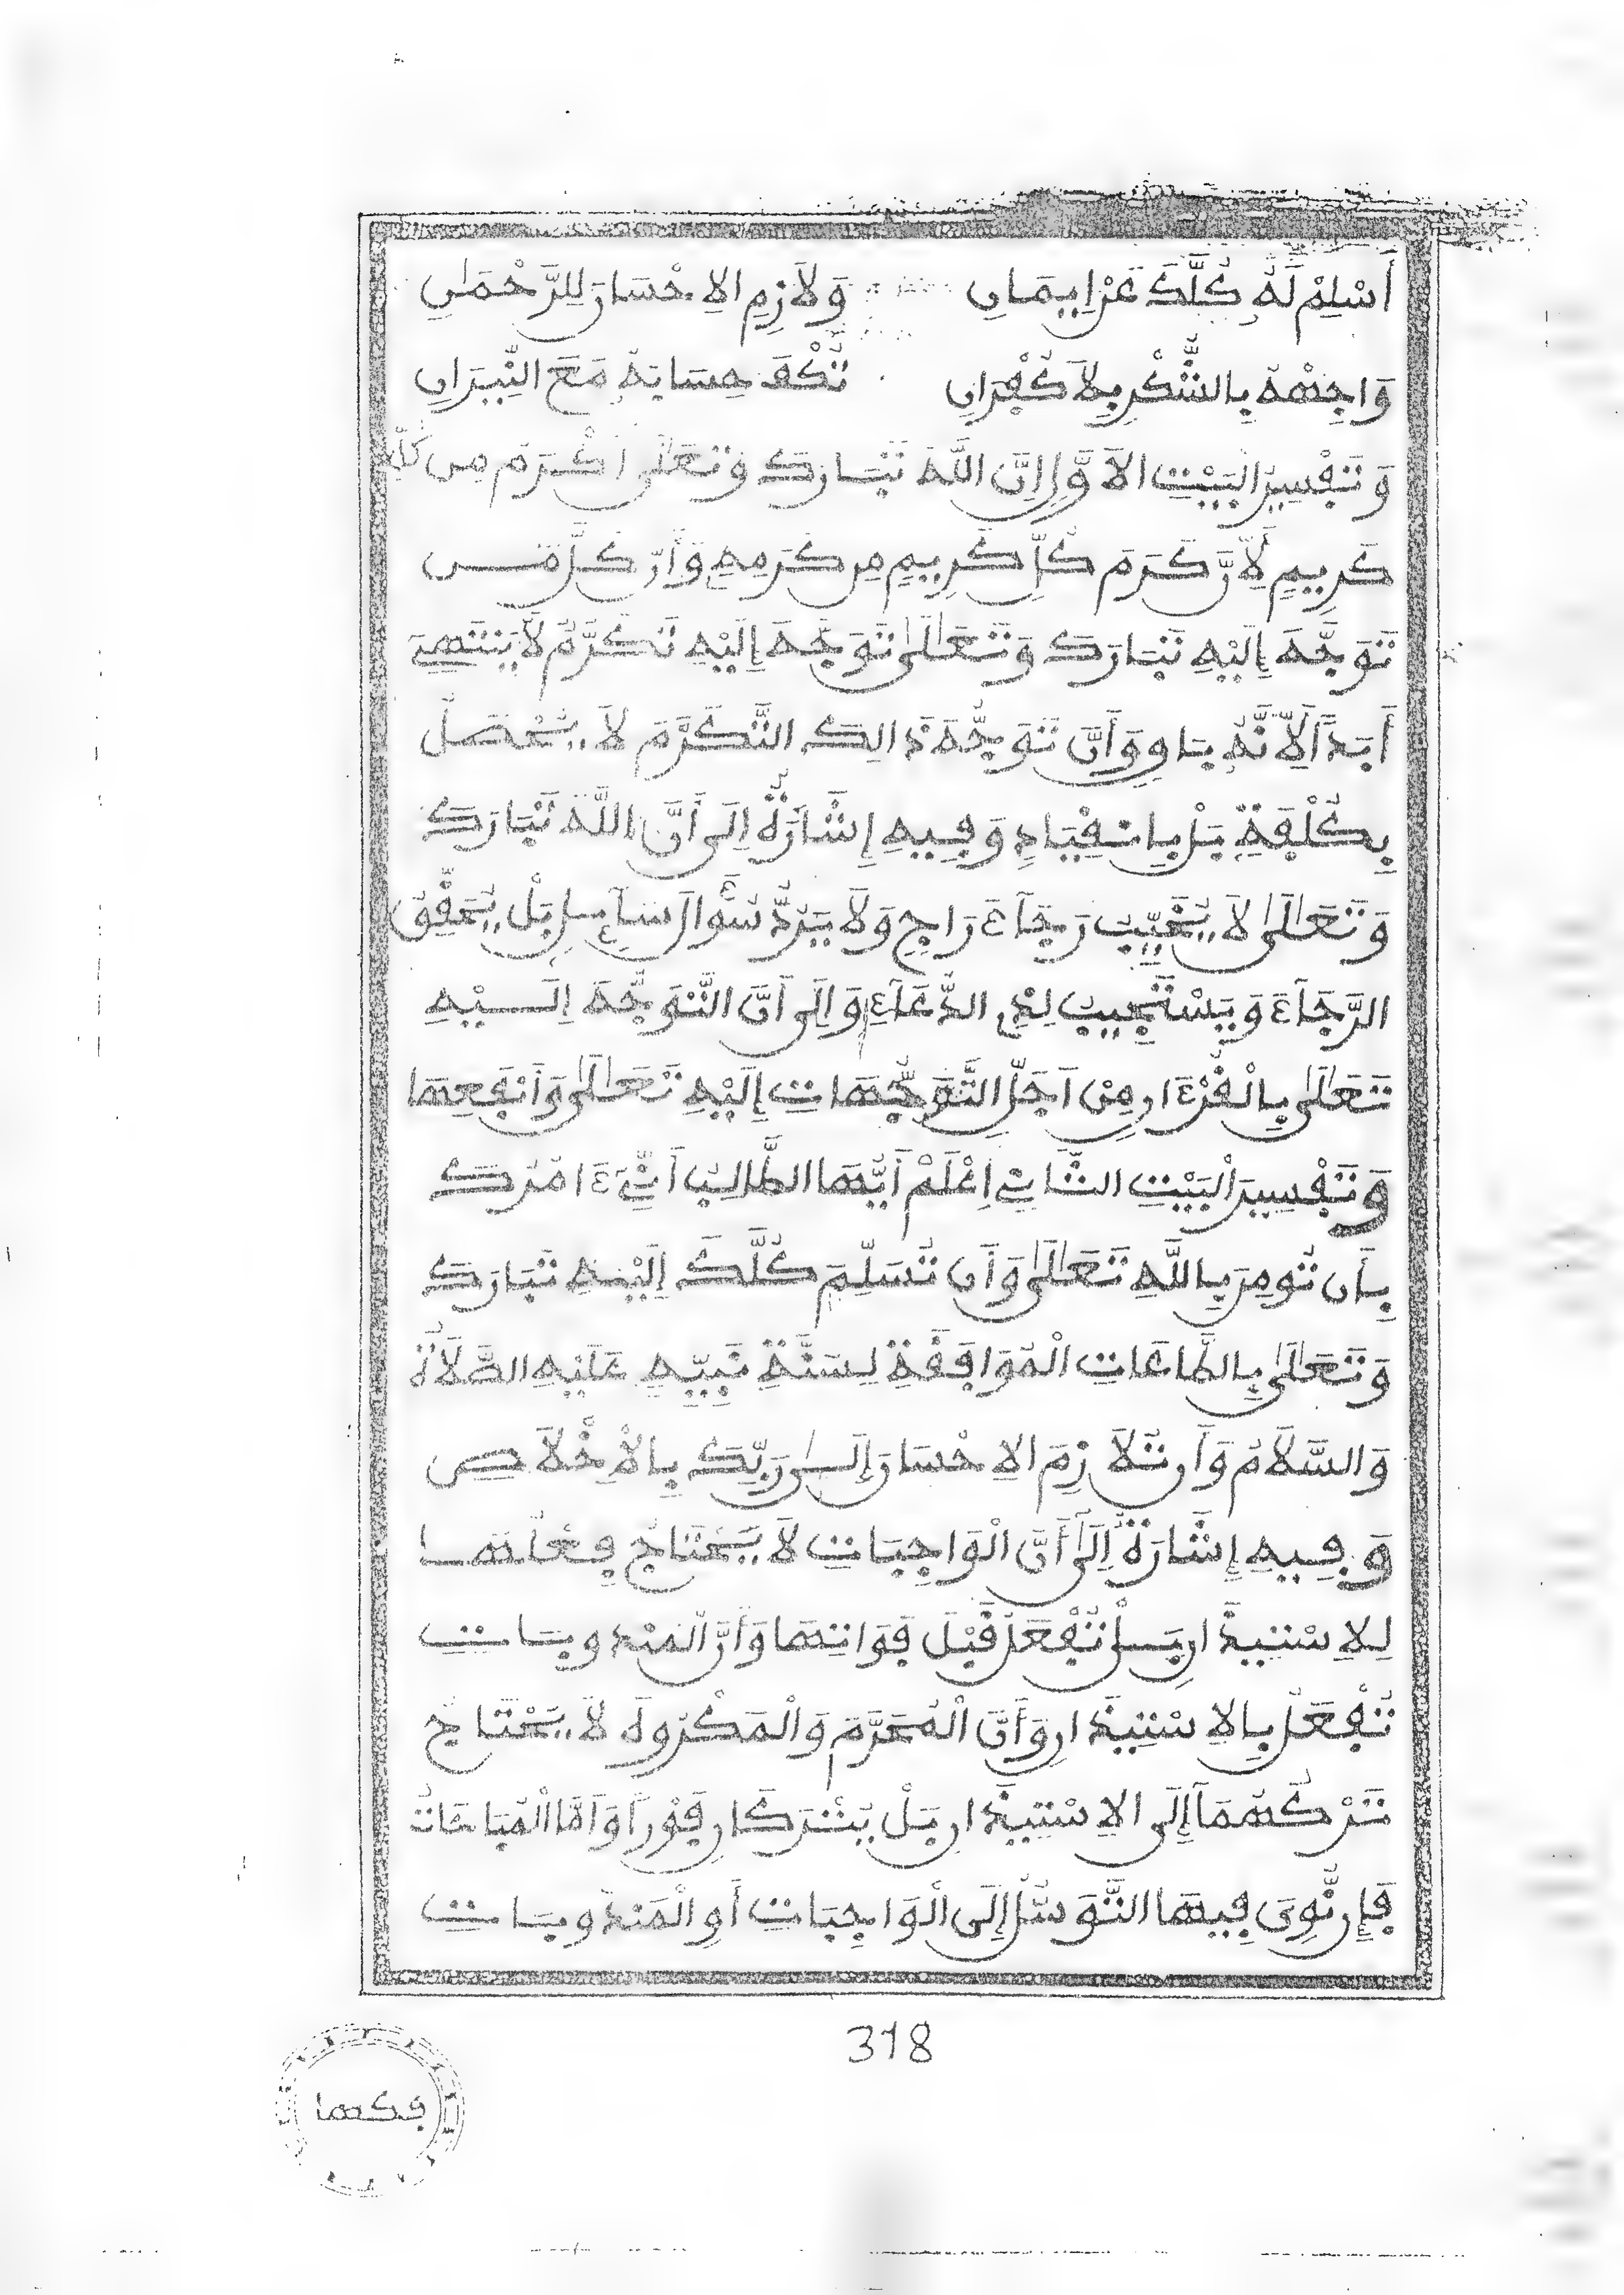 أَسْلِمْ لَهُ كُلَّكَ عَنْ إِيمَانِ وَلَازِمِ الِاحْسَانَ لِلرَّحْمَٰنِ
وَاجِهْهُ بِالشُّكْرِ بِلَا كُفْرَانِ تُكْفَ حِسَابَهُ مَعَ النِّيرَانِ
وَتَفْسِيرُ الْبَيْتِ الَاوَّلِ إِنَّ اللَّهَ تَبَارَكَ وَتَعَلَىٰ أَكْرَمُ مِن كُلِّ
كَرِيمٍ لِأَنَّ كَرَمَ كُلِّ كَرِيمٍ مِن كَرَمِهِ وَأَنَّ كُلَّ مَن
تَوَجَّهَ إِلَيْهِ تَبَارَكَ وَتَعَالَىٰ تَوَجَّهَ إِلَيْهِ تَكَرُّمٌ لَا يَنتَهِي
أَبَداً لِأَنَّهُ بَاقٍ وَأَنَّ تَوَجُّهَ ذَالِكَ التَّكَرُّمِ لَا يَحْصُلُ
بِكُلْفَةٍ بَلْ بِانقِيَادٍ وَفِيهِ إِشَارَةٌ اِلَى أَنَّ اللَّهَ تَبَارَكَ
وَتَعَالَىٰ لَا يُخَيِّبُ رَجَآءَ رَاجٍ وَلَا يَرُدُّ سُؤَالَ سَآئِلٍ بَلْ يُحَقِّقُ
الرَّجَآءَ وَيَسْتَجِيبُ لِذِي الدُّعَآءِ وَإِلَى أَنَّ التَّوَجُّهَ اِلَيْهِ
تَعَالَىٰ بِالْقُرْءَانِ مِنْ أَجَلِّ التَّوَجُّهَاتِ إِلَيْهِ تَعَالَىٰ وَأَنْفَعِهَا
وَتَفْسِيرُ الْبَيْتِ الثَّانِي اِعْلَمْ أَيُّهَا الطَّالِبُ أَنِّي ءَامُرُكَ
بِأَن تُومِنَ بِاللَّهِ تَعَالَىٰ وَأَن تُسَلِّمَ كُلَّكَ إِلَيْهِ تَبَارَكَ
وَتَعَالَىٰ بِالطَّاعَاتِ الْمُوَافِقَةِ لِسُنَّةِ نَبِيِّهِ عَلَيْهِ الصَّلَاةُ
وَالسَّلَامُ وَأَن تُلَازِمَ الِاحْسَانَ إِلَى رَبِّكَ بِالْإِخْلَاصِ
وَفِيهِ إِشَارَةٌ اِلَىٰ أَنَّ الْوَاجِبَاتِ لَا يَحْتَاجُ فِعْلُهَا
لِلِاسْتِيذَانِ بَلْ تُفْعَلُ قَبْلَ فَوَاتِهَا وَأَنَّ الْمَنْدُوبَاتِ
تُفْعَلُ بِالِاسْتِيذَانِ وَأَنَّ الْمُحَرَّمَ وَالْمَكْرُوهَ لَا يَحْتَاجُ
تَرْكُهُمَآ إِلَى الِاسْتِيذَانِ بَلْ يُتْرَكَانِ فَوْراً وَأَمَّا الْمُبَاحَاتُ
فَإِن نُّوِيَ فِيهَا التَّوَسُّلُ إِلَى الْوَاجِبَاتِ أَوِ الْمَنْدُوبَاتِ
318